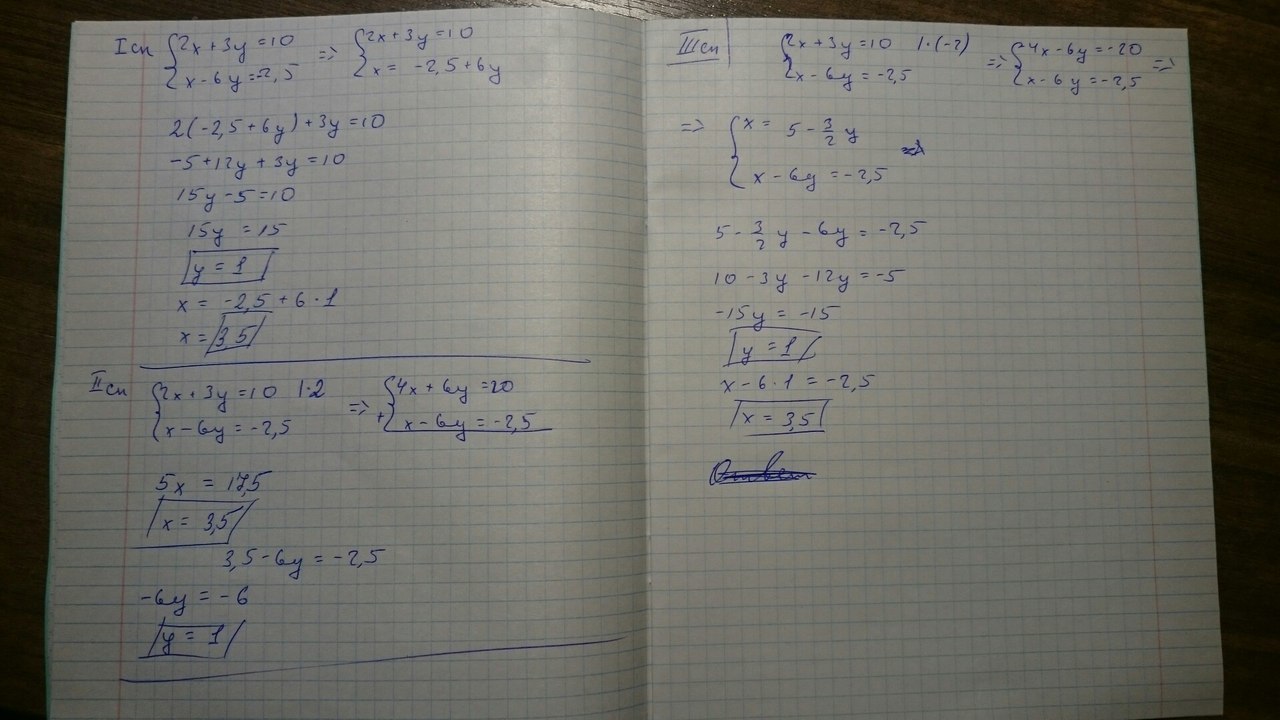 I сп {2x+3y=10 => {2x+3y=10
{x-6y=-2,5 {x= -2,5+6y
2(-2,5+6y)+3y=10
-5+12y+3y=10
15y-5=10
15y=15
y=1
x= -2,5+6·1
x=3,5
II сп {2x+3y=10 |·2 => {4x+6y=20
{x-6y=-2,5 +{x-6y=-2,5
5x=17,5
x=3,5
3,5-6y=-2,5
-6y=-6
y=1
III сп {2x+3y=10 |·(-2) => {4x-6y=-20 =>
{x-6y=-2,5 {x-6y=-2,5
=> {x= 5-3/2 y
{x-6y=-2,5
5-3/2 y-6y=-2,5
10-3y-12y=-5
-15y=-15
y=1
x-6·1=-2,5
x=3,5